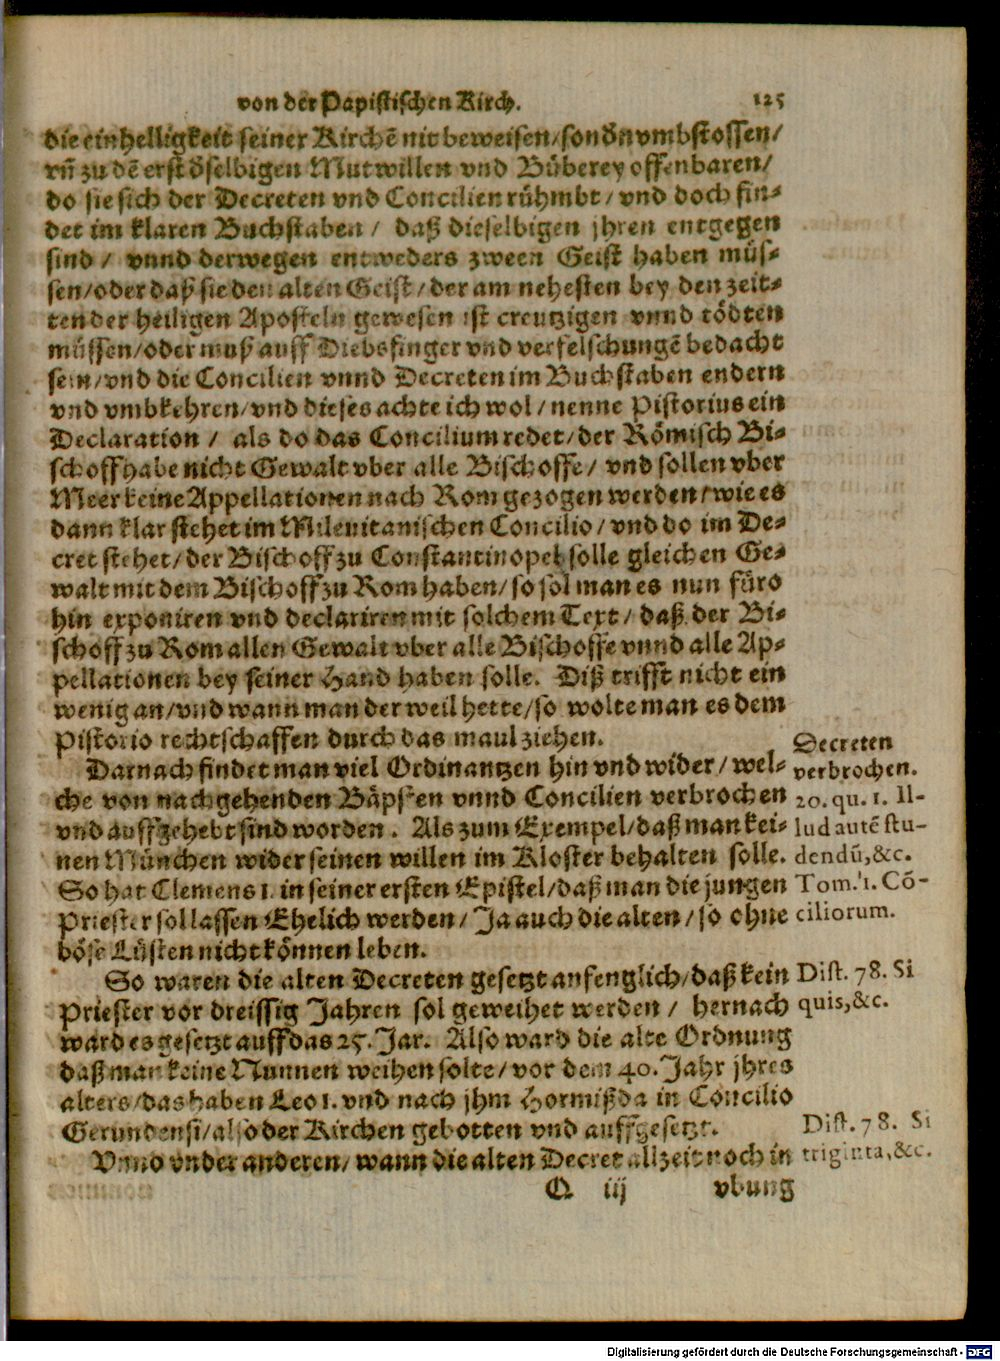 von der Papistischen Kirch. 125
die einhelligkeit seiner Kirchẽ nit beweisen/sondn vmbstossen/
vñ zu dẽ erst dselbigen Mutwillen vnd Büberey offenbaren/
do sie sich der Decreten vnd Concilien rühmbt/ vnd doch fin-
det im klaren Buchstaben / daß dieselbigen jhren entgegen
sind / vnnd derwegen entweders zween Geist haben müs-
sen/oder daß sie den alten Geist/der am nehesten bey den zeit-
ten der heiligen Aposteln gewesen ist creutzigen vnnd tödten
müssen/oder muß auff Diebsfinger vnd verfelschungẽ bedacht
sein/vnd die Concilien vnnd Decreten im Buchstaben endern
vnd vmbkehren/vnd dieses achte ich wol/nenne Pistorius ein
Declaration / als do das Concilium redet/der Römisch Bi-
schoff habe nicht Gewalt vber alle Bischoffe/ vnd sollen vber
Meer keine Appellationen nach Rom gezogen werden/wie es
dann klar stehet im Mileuitanischen Concilio/vnd do im De-
cret stehet/der Bischoff zu Constantinopel solle gleichen Ge-
walt mit dem Bischoff zu Rom haben/so sol man es nun füro
hin exponiren vnd declariren mit solchem Text/ daß der Bi-
schoff zu Rom allen Gewalt vber alle Bischoffe vnnd alle Ap-
pellationen bey seiner Hand haben solle. Diß trifft nicht ein
wenig an/vnd wann man der weil hette/so wolte man es dem
Pistorio rechtschaffen durch das maul ziehen.
Darnach findet man viel Ordinantzen hin vnd wider/wel-
che von nachgehenden Bäpsten vnnd Concilien verbrochen
vnd auffgehebt sind worden. Als zum Exempel/daß man kei-
nen München wider seinen willen im Kloster behalten solle.
So hat Clemens 1. in seiner ersten Epistel/daß man die jungen
Priester sol lassen Ehelich werden/ Ja auch die alten/so ohne
böse Lüsten nicht können leben.
Decreten
verbrochen.
20. qu. 1. Il-
lud autẽ stu-
dendũ,&c.
Tom. 1. Cõ-
ciliorum.
So waren die alten Decreten gesetzt anfenglich/daß kein
Priester vor dreissig Jahren sol geweihet werden / hernach
ward es gesetzt auff das 25. Jar. Also ward die alte Ordnung
daß man keine Nunnen weihen solte/ vor dem 40. Jahr jhres
alters/das haben Leo 1. vnd nach jhm Hormißda in Concilio
Gerundensi/also der Kirchen gebotten vnd auffgesetzt.
Dist. 78. Si
quis,&c.
Vnnd vnder anderen/ wann die alten Decret allzeit noch in
Dist. 78. Si
triginta,&c.
Q iij vbung
Digitalisierung gefördert durch die Deutsche Forschungsgemeinschaft - DFG